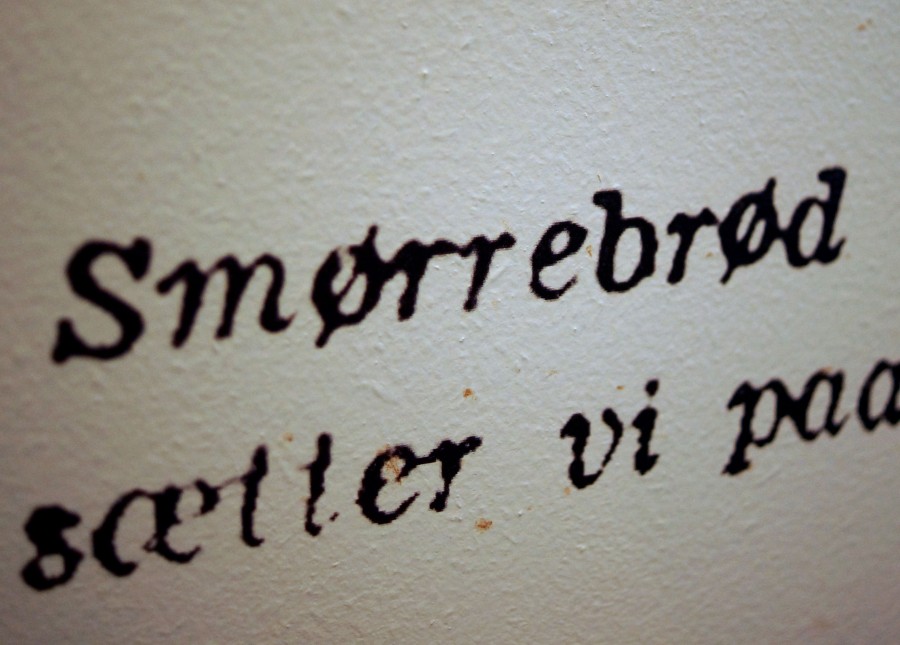 Smørrebrød
sætter vi paa